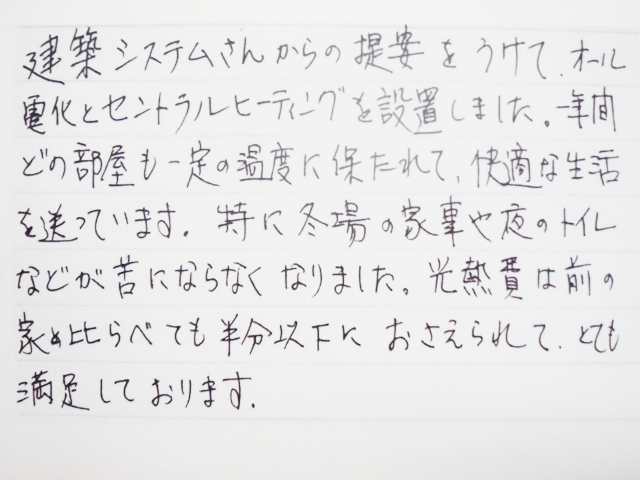 建築システムさんからの提案をうけて、オール
電化とセントラルヒーティングを設置しました。一年間
どの部屋も一定の温度に保たれて、快適な生活
を送っています。特に冬場の家事や夜のトイレ
などが苦にならなくなりました。光熱費は前の
家と比らべても半分以下におさえられて、とても
満足しております。